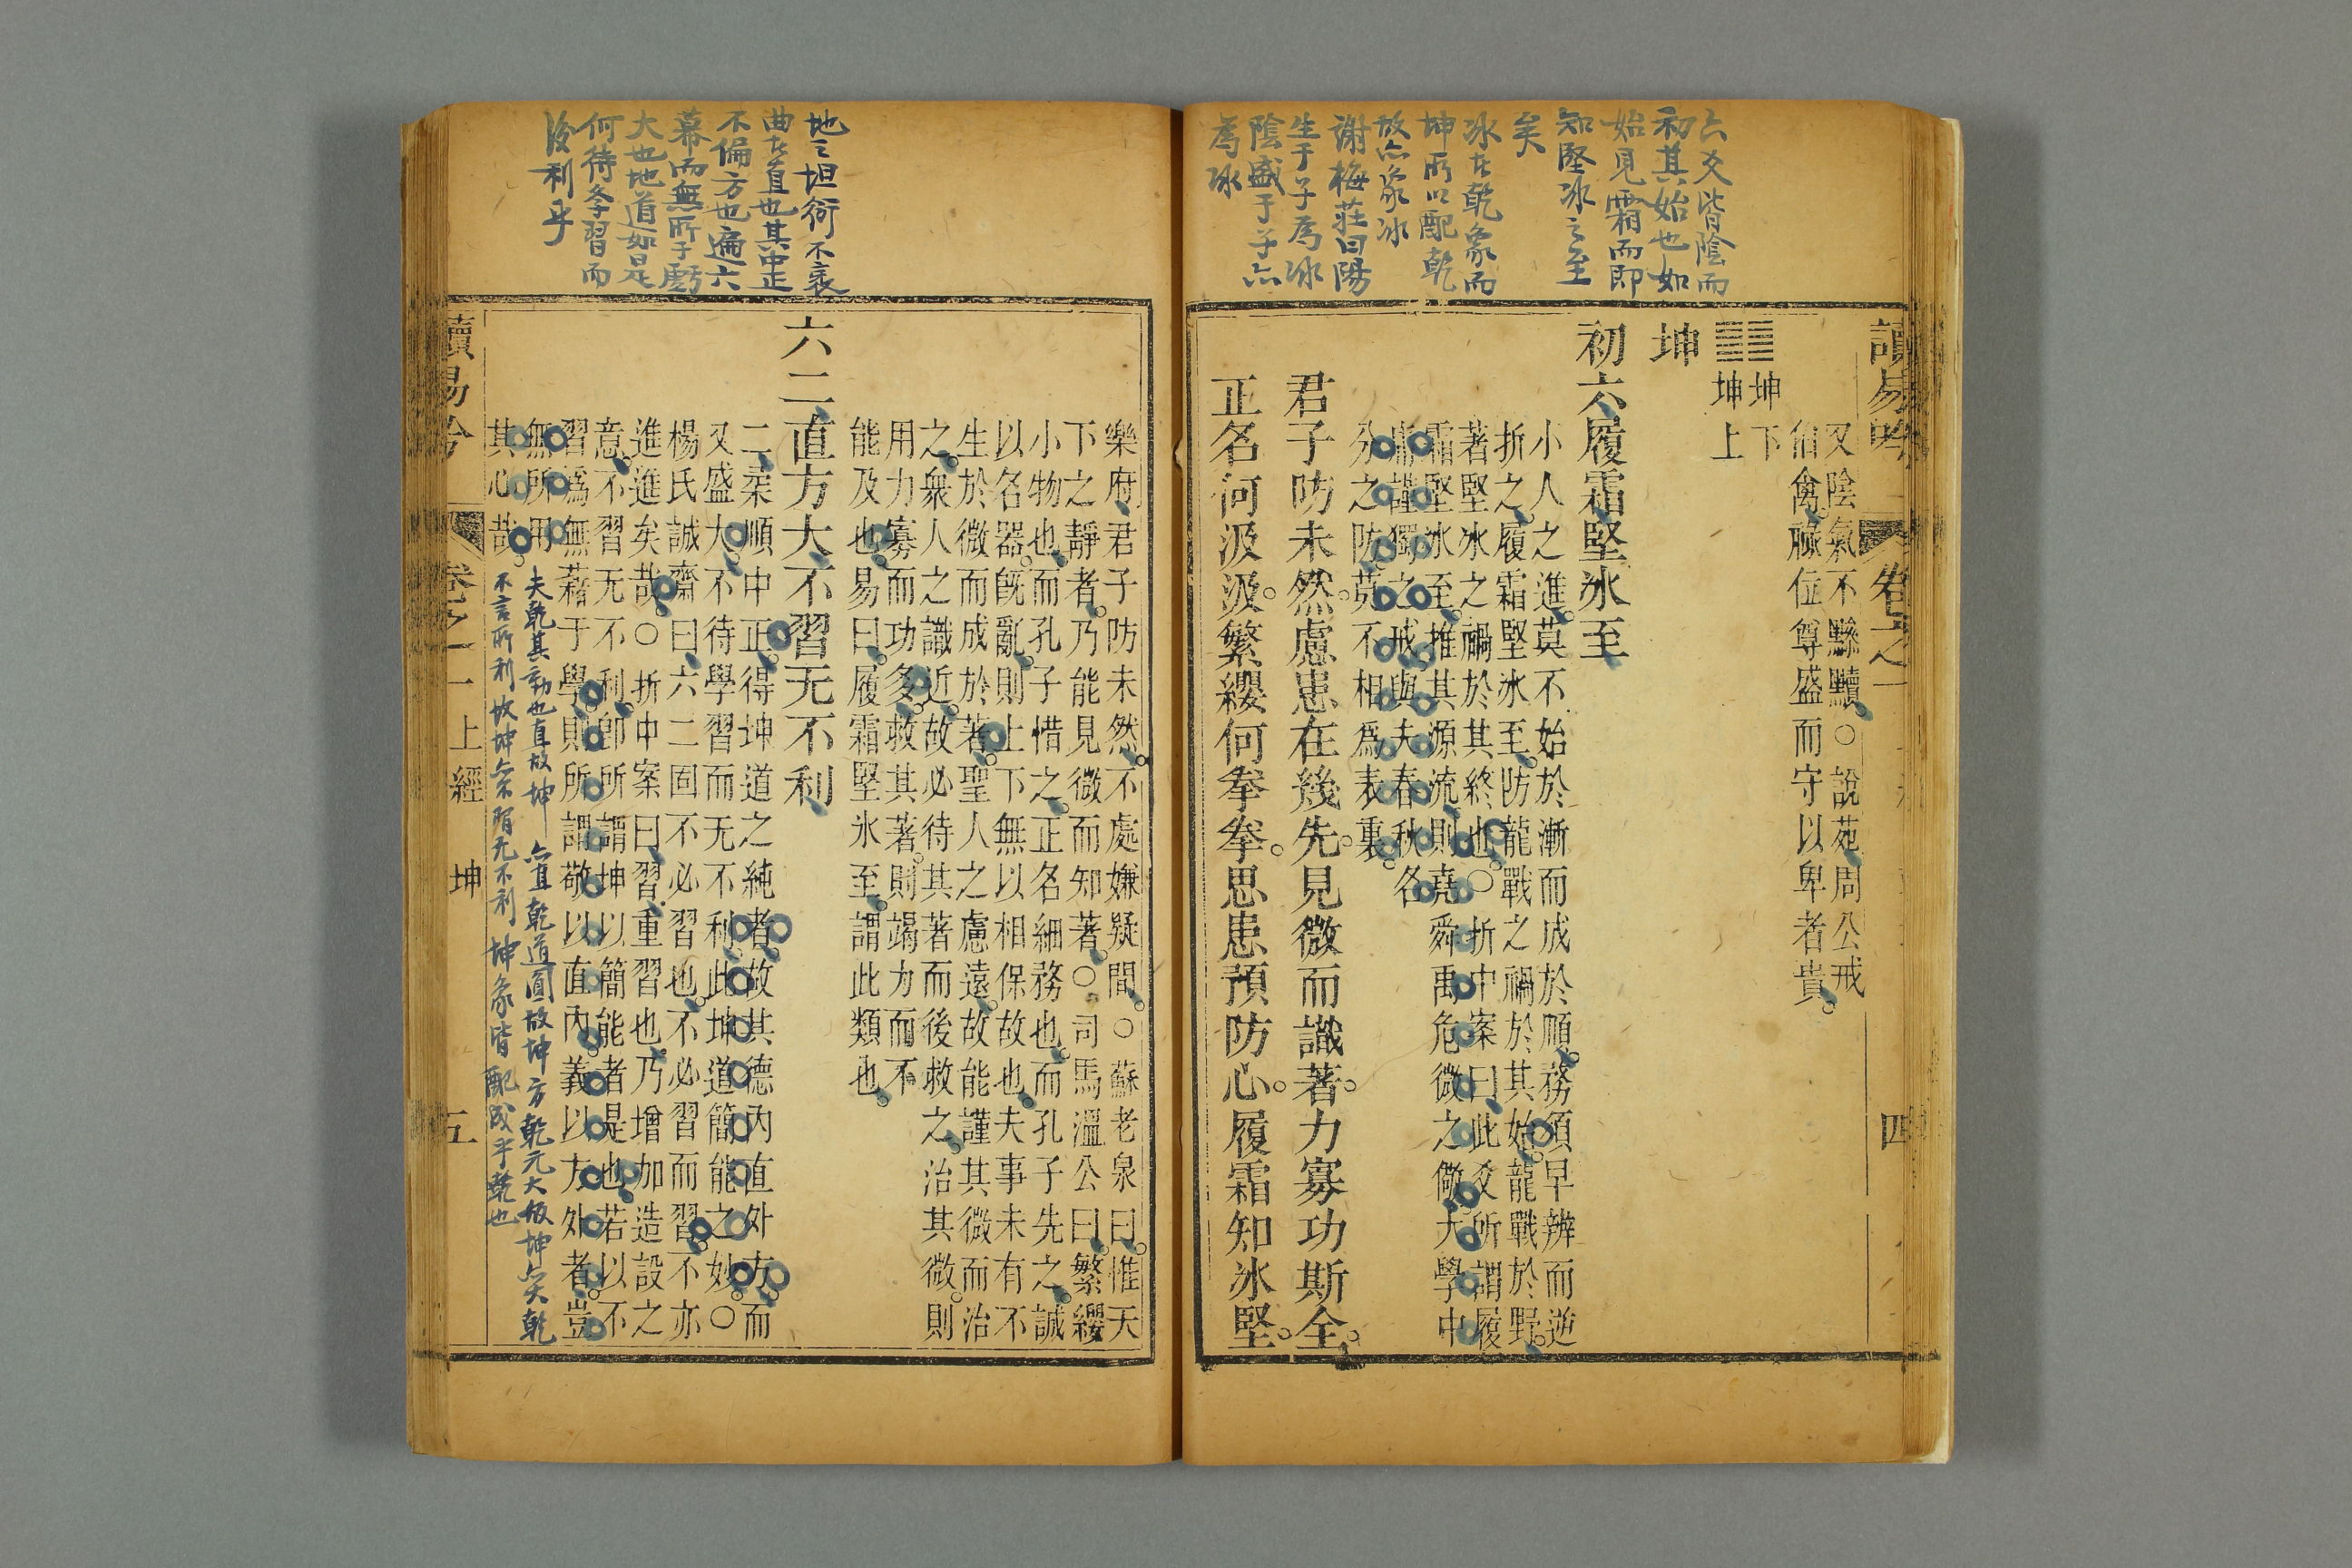 六爻皆陰而
初其始也如
始見霜而即
知堅冰之至
矣
冰在乾象而
坤所以配乾
故亦象冰
謝梅莊曰陽
生于子為冰
陰盛于子亦
為冰
讀易吟
卷之一
四
又陰氣不黲黷○說苑周公戒
伯禽祿位尊盛而守以卑者貴
坤下
坤上
坤
初六履霜堅冰至
小人之進莫不始於漸而成於順務須早辨而逆
折之履霜堅冰至防龍戰之禍於其始龍戰於野
著堅冰之禍於其終也○折中案曰此爻所謂履
霜堅冰至推其源流則堯舜禹危微之儆大學中
庸謹獨之戒與夫春秋名
分之防莫不相為表裏
君子防未然慮患在幾先見微而識著力寡功斯全
正名何汲汲繁纓何拳拳思患預防心履霜知冰堅
地之坦衍不衺
曲在直也其中正
不偏方也遍六
幕而無所于虧
大也地道如是
何待夆習而
後利乎
樂府君子防未然不處嫌疑間○蘇老泉曰惟天
下之靜者乃能見微而知著○司馬溫公曰繁纓
小物也而孔子惜之正名細務也而孔子先之誠
以名器旣亂則上下無以相保故也夫事未有不
生於微而成於著聖人之慮遠故能謹其微而治
之衆人之識近故必待其著而後救之治其微則
用力寡而功多救其著則竭力而不
能及也易曰履霜堅氷至謂此類也
六二直方大不習无不利
二柔順中正得坤道之純者故其德內直外方而
又盛大不待學習而无不利此坤道簡能之妙○
楊氏誠齋曰六二固不必習也不必習而習不亦
進進矣哉○折中案曰習重習也乃增加造設之
意不習无不利卽所謂坤以簡能者是也若以不
習爲無藉于學則所謂敬以直內義以方外者豈
無所用
其心哉
夫乾其動也直故坤亦直乾道圓故坤方乾元大故坤亦大乾
不言所利故坤亦不習无不利坤象皆配成乎乾也
讀易吟
卷之一 上經 坤
五